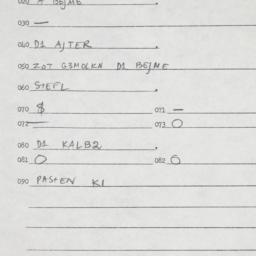 020 A BEJME
030 —
040 D1 AJTER .
050 ZOT G3MOLKN D1 BEJME
060 STEFL .
070 $ 071 —
072 — 073 O
080 D1 KALB2 .
081 O 082 O
090 PASTEN KI